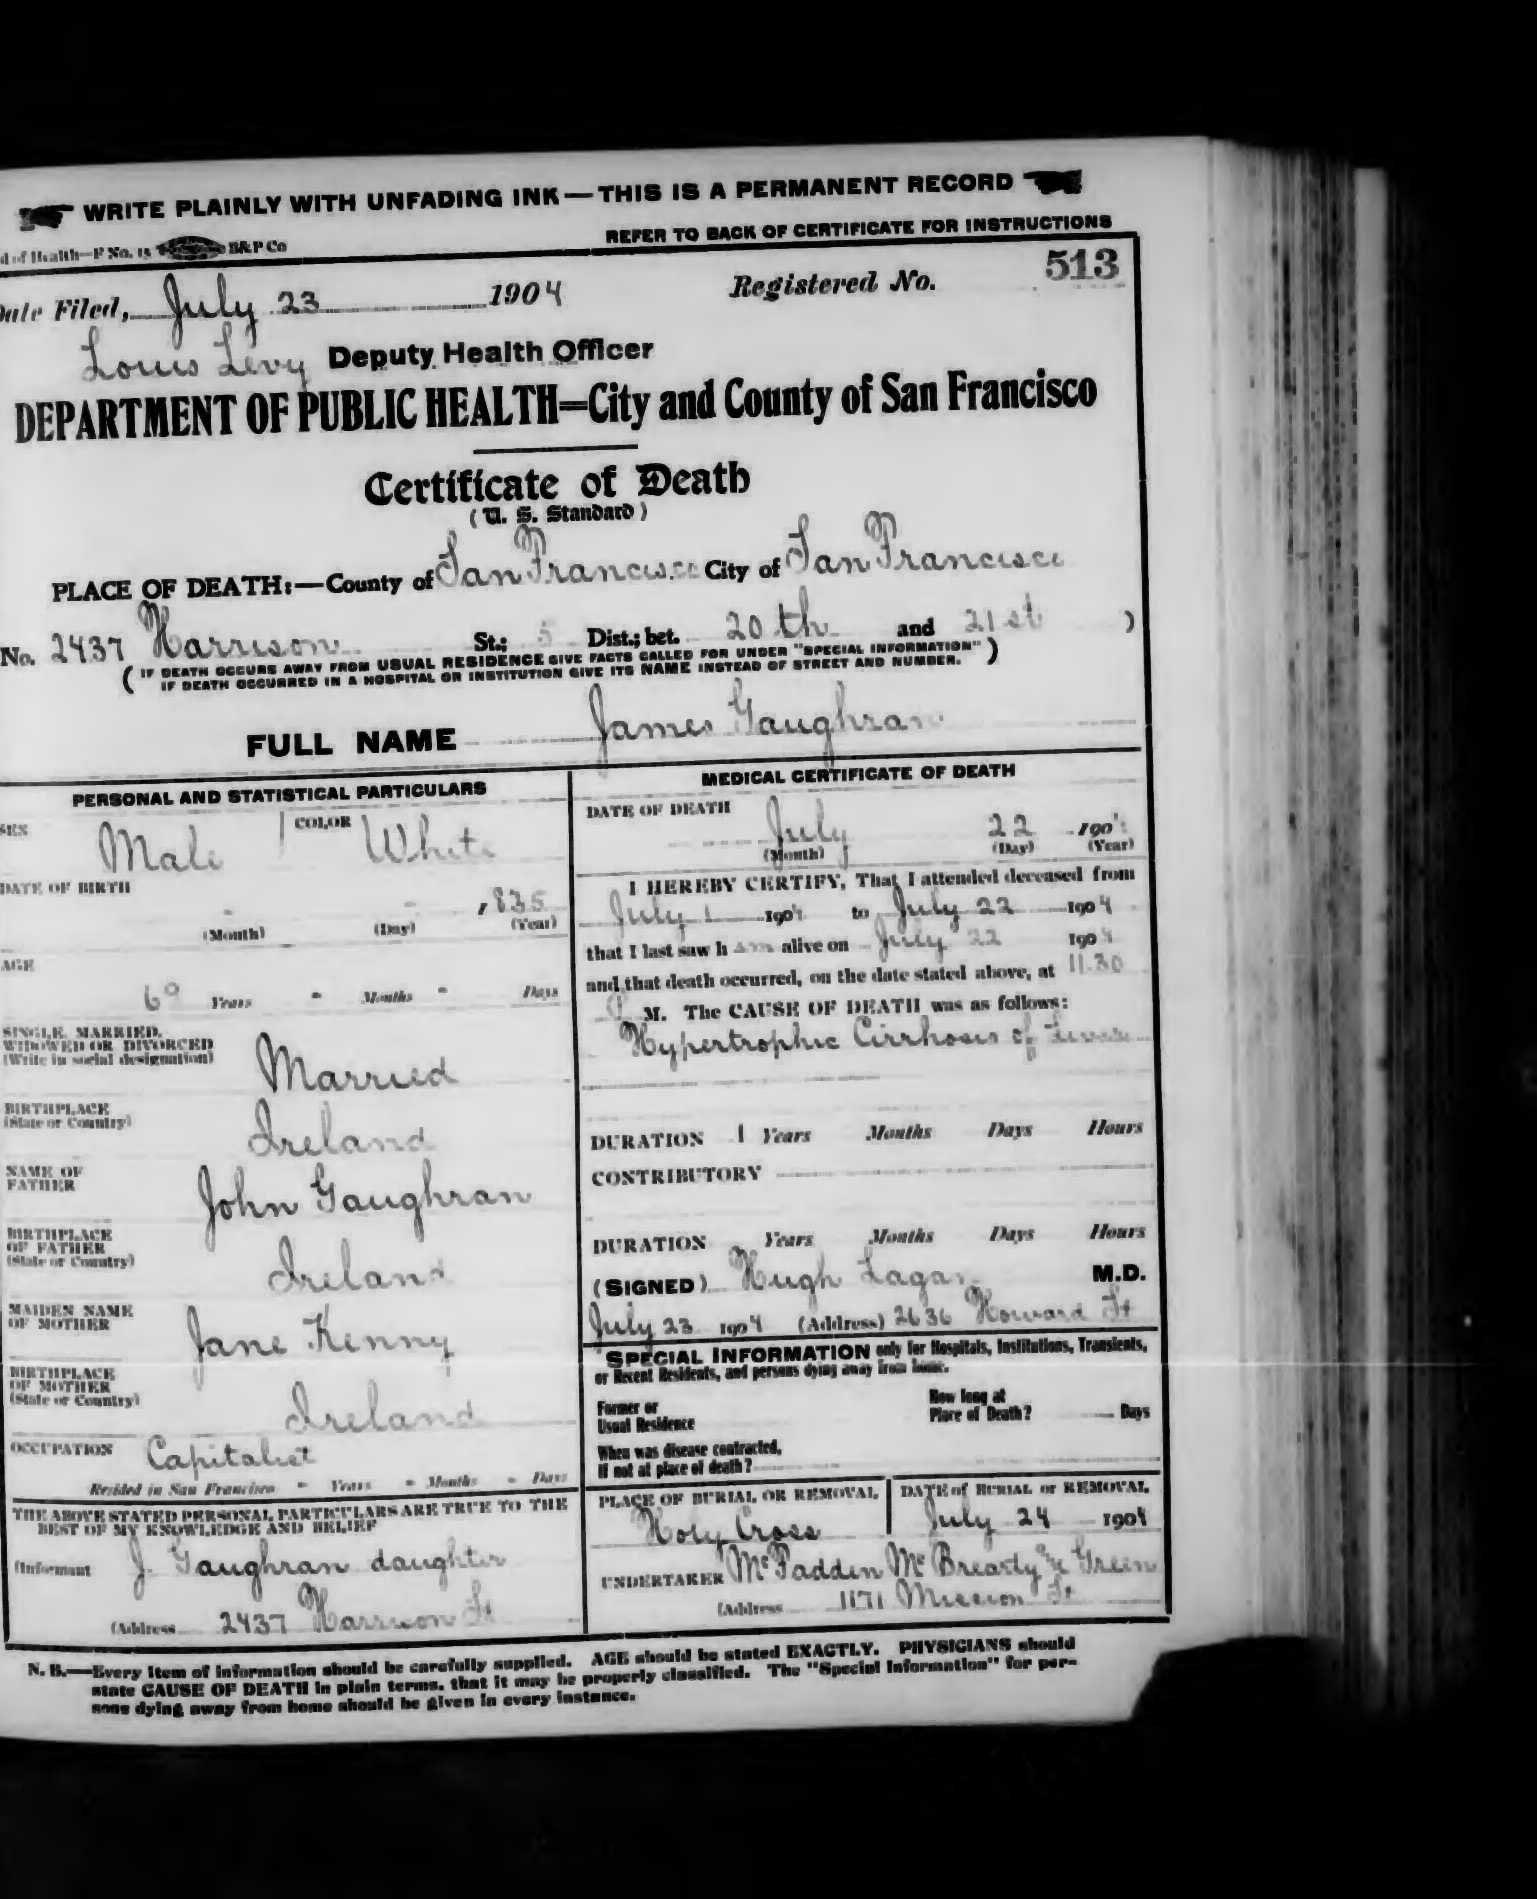 WRITE PLAINLY WITH UNFADING INK—THIS IS A PERMANENT RECORD
d of Health—F No. 15 B&P Co
REFER TO BACK OF CERTIFICATE FOR INSTRUCTIONS
Date Filed, July 23 1904 Registered No. 513
Louis Levy Deputy Health Officer
DEPARTMENT OF PUBLIC HEALTH=City and County of San Francisco
Certificate of Death
(U. S. Standard)
PLACE OF DEATH:—County of San Francisco City of San Francisco
No. 2437 Harrison St.; 5 Dist.; bet. 20th and 21st )
( IF DEATH OCCURS AWAY FROM USUAL RESIDENCE GIVE FACTS CALLED FOR UNDER "SPECIAL INFORMATION" )
IF DEATH OCCURRED IN A HOSPITAL OR INSTITUTION GIVE ITS NAME INSTEAD OF STREET AND NUMBER.
FULL NAME James Gaughran
PERSONAL AND STATISTICAL PARTICULARS
SEX Male COLOR White
DATE OF BIRTH
- - 1835
(Month) (Day) (Year)
AGE
69 Years - Months - Days
SINGLE, MARRIED,
WIDOWED OR DIVORCED
(Write in social designation)
Married
BIRTHPLACE
(State or Country)
Ireland
NAME OF
FATHER
John Gaughran
BIRTHPLACE
OF FATHER
(State or Country)
Ireland
MAIDEN NAME
OF MOTHER
Jane Kenny
BIRTHPLACE
OF MOTHER
(State or Country)
Ireland
OCCUPATION Capitalist
Resided in San Francisco - Years - Months - Days
THE ABOVE STATED PERSONAL PARTICULARS ARE TRUE TO THE
BEST OF MY KNOWLEDGE AND BELIEF
(Informant J. Gaughran daughter
(Address 2437 Harrison St
MEDICAL CERTIFICATE OF DEATH
DATE OF DEATH
July 22 1904
(Month) (Day) (Year)
I HEREBY CERTIFY, That I attended deceased from
July 1 1904 to July 22 1904
that I last saw him alive on July 22 1904
and that death occurred, on the date stated above, at 11.30
P M. The CAUSE OF DEATH was as follows:
Hypertrophic Cirrhosis of Liver
DURATION 1 Years Months Days Hours
CONTRIBUTORY
DURATION Years Months Days Hours
(SIGNED) Hugh Lagan M.D.
July 23 1904 (Address) 2636 Howard St
SPECIAL INFORMATION only for Hospitals, Institutions, Transients,
or Recent Residents, and persons dying away from home.
Former or
Usual Residence
How long at
Place of Death? Days
When was disease contracted,
If not at place of death?
PLACE OF BURIAL OR REMOVAL
Holy Cross
DATE of BURIAL or REMOVAL
July 24 1904
UNDERTAKER McFadden McBrearty & Green
(Address 1171 Mission St
N. B.—Every item of information should be carefully supplied. AGE should be stated EXACTLY. PHYSICIANS should
state CAUSE OF DEATH in plain terms, that it may be properly classified. The "Special Information" for per-
sons dying away from home should be given in every instance.